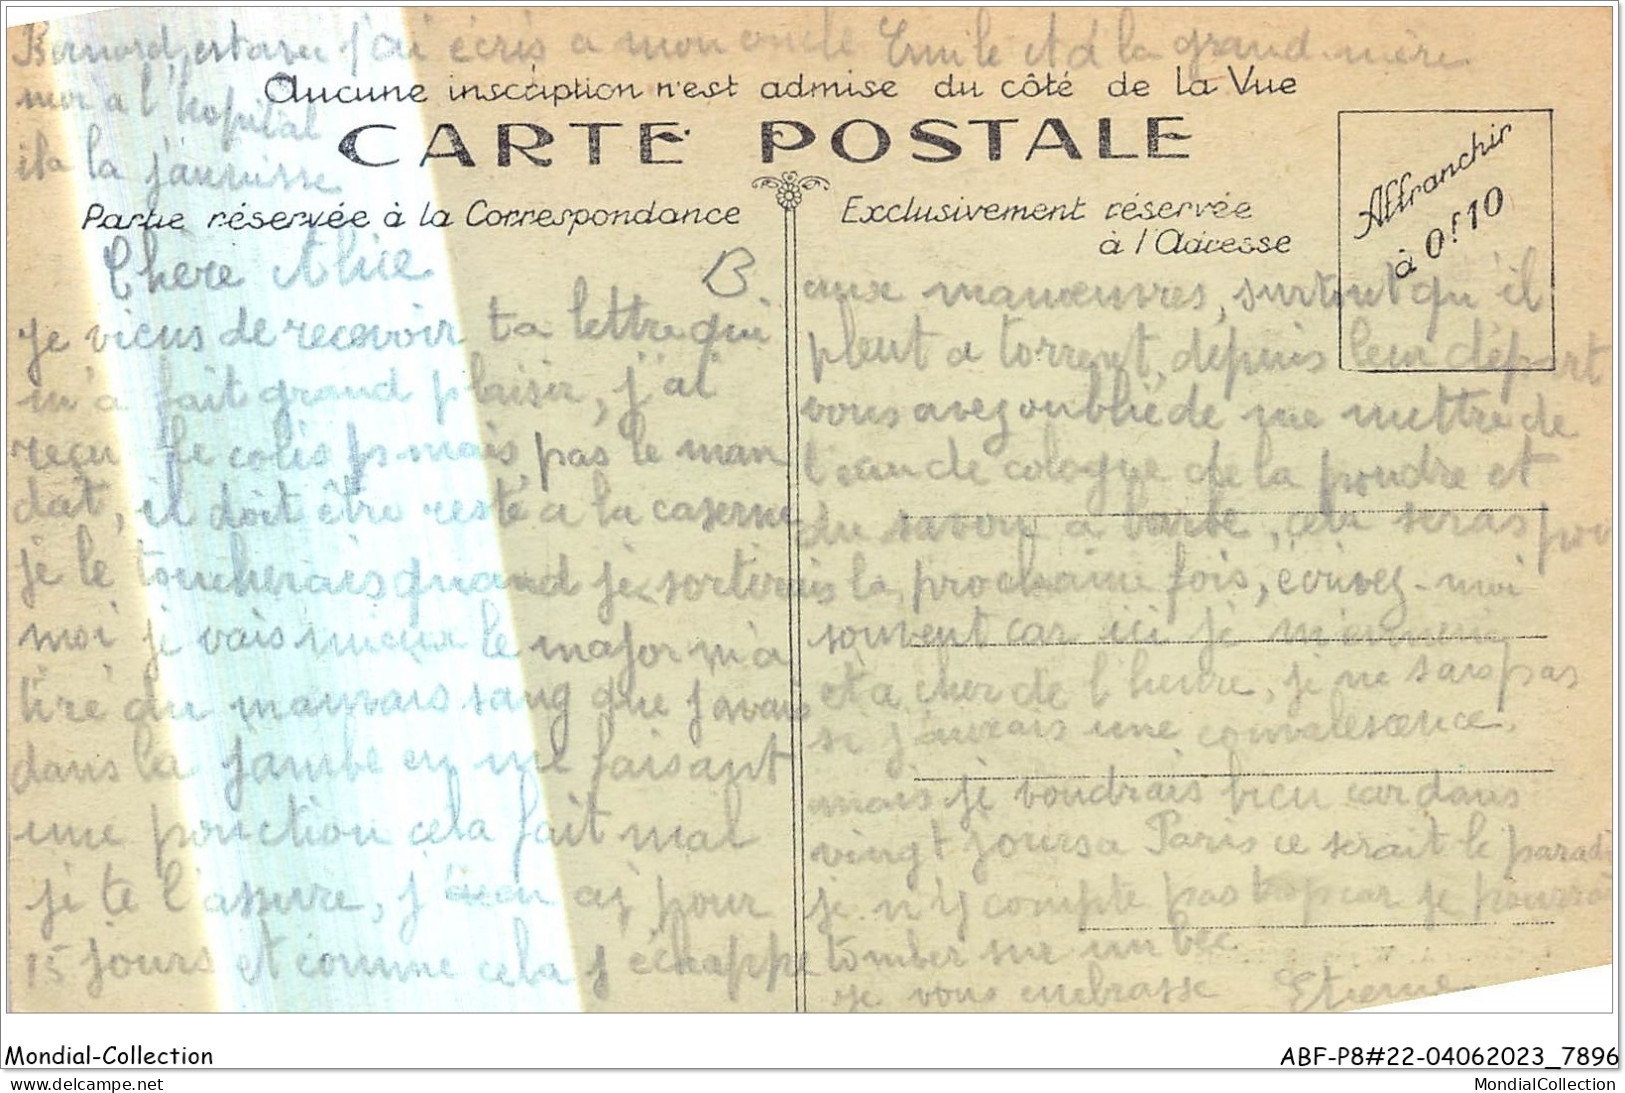 Bernard, est avec j'ai écris a mon oncle Emile et à la grand-mère
moi a l'hopital
il a la jaunisse
Aucune inscription n'est admise du côté de la Vue
CARTE POSTALE
Partie réservée à la Correspondance
Exclusivement réservée
à l'Adresse
Affranchir
à 0f10
Chere Alice
B
je viens de recevoir ta lettre qui
m'a fait grand plaisir, j'ai
reçu le colis mais pas le man
dat, il doit être resté a la caserne
je le toucherais quand je sortirais
moi je vais mieux le major m'a
tiré du mauvais sang que j'avais
dans la jambe en me faisant
une ponction cela fait mal
je te l'assure, j'en ai pour
15 jours et comme cela j'échappe
aux manœuvres, surtout qu'il
pleut a torrent, depuis leur départ
vous avez oublié de me mettre de
l'eau de cologne de la poudre et
du savon a barbe, cela seras pour
la prochaine fois, écrivez-moi
souvent car ici je m'ennuie
et a cher de l'heure, je ne sais pas
si j'aurais une convalescence.
mais je voudrais bien car dans
vingt jours a Paris ce serait le paradis
je n'y compte pas trop car je pourrais
tomber sur un bec
je vous embrasse Etienne
Mondial-Collection
ABF-P8#22-04062023_7896
delcampe.net
MondialCollection